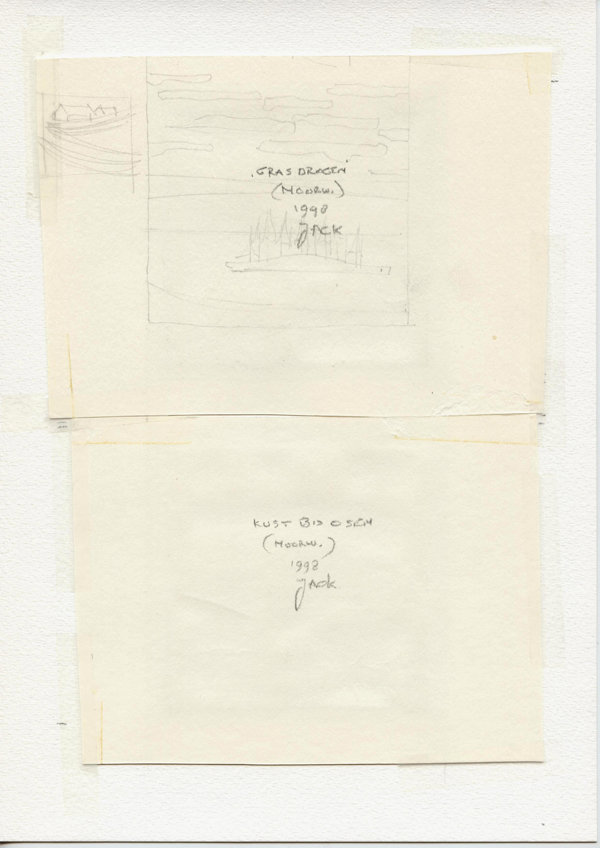 GRASDROGEN
(NOORW.)
1998
JACK
KUST BIJ OSEN
(NOORW.)
1998
JACK